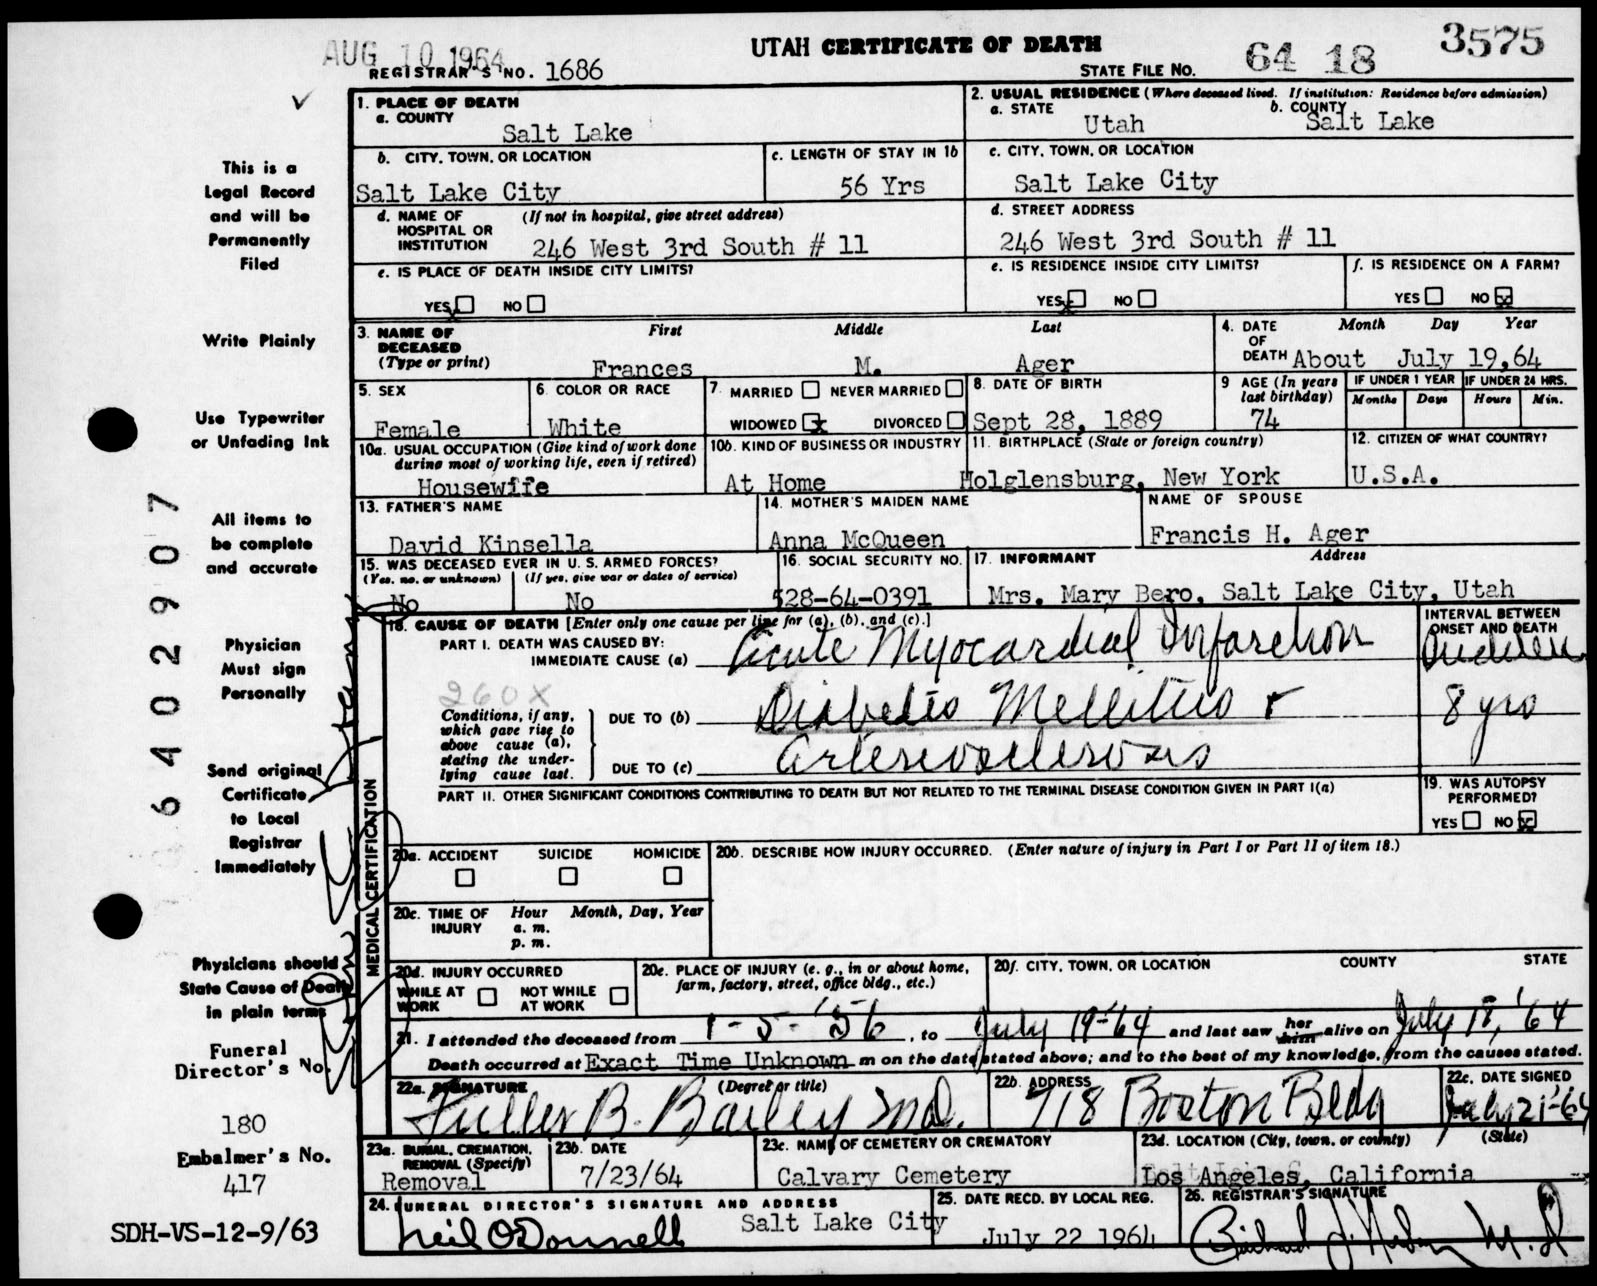 AUG 10 1964
UTAH CERTIFICATE OF DEATH
REGISTRAR'S NO. 1686
STATE FILE NO. 64 18 3575
1. PLACE OF DEATH
a. COUNTY
Salt Lake
2. USUAL RESIDENCE (Where deceased lived. If institution: Residence before admission)
a. STATE b. COUNTY
Utah Salt Lake
b. CITY, TOWN, OR LOCATION
Salt Lake City
c. LENGTH OF STAY IN 1b
56 Yrs
c. CITY, TOWN, OR LOCATION
Salt Lake City
d. NAME OF HOSPITAL OR INSTITUTION (If not in hospital, give street address)
246 West 3rd South # 11
d. STREET ADDRESS
246 West 3rd South # 11
e. IS PLACE OF DEATH INSIDE CITY LIMITS?
YES NO
e. IS RESIDENCE INSIDE CITY LIMITS?
YES NO
f. IS RESIDENCE ON A FARM?
YES NO
3. NAME OF DECEASED (Type or print)
First Middle Last
Frances M. Ager
4. DATE OF DEATH Month Day Year
About July 19,64
5. SEX
Female
6. COLOR OR RACE
White
7. MARRIED NEVER MARRIED
WIDOWED DIVORCED
8. DATE OF BIRTH
Sept 28, 1889
9 AGE (In years last birthday)
74
IF UNDER 1 YEAR
Months Days
IF UNDER 24 HRS.
Hours Min.
10a. USUAL OCCUPATION (Give kind of work done during most of working life, even if retired)
Housewife
10b. KIND OF BUSINESS OR INDUSTRY
At Home
11. BIRTHPLACE (State or foreign country)
Holglensburg, New York
12. CITIZEN OF WHAT COUNTRY?
U.S.A.
13. FATHER'S NAME
David Kinsella
14. MOTHER'S MAIDEN NAME
Anna McQueen
NAME OF SPOUSE
Francis H. Ager
15. WAS DECEASED EVER IN U. S. ARMED FORCES?
(Yes, no, or unknown) (If yes, give war or dates of service)
No No
16. SOCIAL SECURITY NO.
528-64-0391
17. INFORMANT Address
Mrs. Mary Bero, Salt Lake City, Utah
18. CAUSE OF DEATH [Enter only one cause per line for (a), (b), and (c).]
INTERVAL BETWEEN ONSET AND DEATH
PART I. DEATH WAS CAUSED BY:
IMMEDIATE CAUSE (a) Acute Myocardial Infarction
Sudden
260X
Conditions, if any, which gave rise to above cause (a), stating the underlying cause last.
DUE TO (b) Diabetes Mellitus +
8 yrs
DUE TO (c) Arteriosclerosis
PART II. OTHER SIGNIFICANT CONDITIONS CONTRIBUTING TO DEATH BUT NOT RELATED TO THE TERMINAL DISEASE CONDITION GIVEN IN PART I(a)
19. WAS AUTOPSY PERFORMED?
YES NO
MEDICAL CERTIFICATION
20a. ACCIDENT SUICIDE HOMICIDE
20b. DESCRIBE HOW INJURY OCCURRED. (Enter nature of injury in Part I or Part II of item 18.)
20c. TIME OF INJURY Hour Month, Day, Year
a. m.
p. m.
20d. INJURY OCCURRED
WHILE AT WORK NOT WHILE AT WORK
20e. PLACE OF INJURY (e. g., in or about home, farm, factory, street, office bldg., etc.)
20f. CITY, TOWN, OR LOCATION COUNTY STATE
21. I attended the deceased from 1-5-'56, to July 19-'64 and last saw her him alive on July 18, '64
Death occurred at Exact Time Unknown m on the date stated above; and to the best of my knowledge, from the causes stated.
22a. SIGNATURE (Degree or title)
Fuller B. Bailey M.D.
22b. ADDRESS
718 Boston Bldg
22c. DATE SIGNED
July 21-64
23a. BURIAL, CREMATION, REMOVAL (Specify)
Removal
23b. DATE
7/23/64
23c. NAME OF CEMETERY OR CREMATORY
Calvary Cemetery
23d. LOCATION (City, town, or county) (State)
Los Angeles, California
24. FUNERAL DIRECTOR'S SIGNATURE AND ADDRESS
Neil O'Donnell Salt Lake City
25. DATE RECD. BY LOCAL REG.
July 22 1964
26. REGISTRAR'S SIGNATURE
M.D
This is a
Legal Record
and will be
Permanently
Filed
Write Plainly
Use Typewriter
or Unfading Ink
All items to
be complete
and accurate
6402907
Physician
Must sign
Personally
Send original
Certificate
to Local
Registrar
Immediately
Physicians should
State Cause of Death
in plain terms
Funeral
Director's No.
180
Embalmer's No.
417
SDH-VS-12-9/63